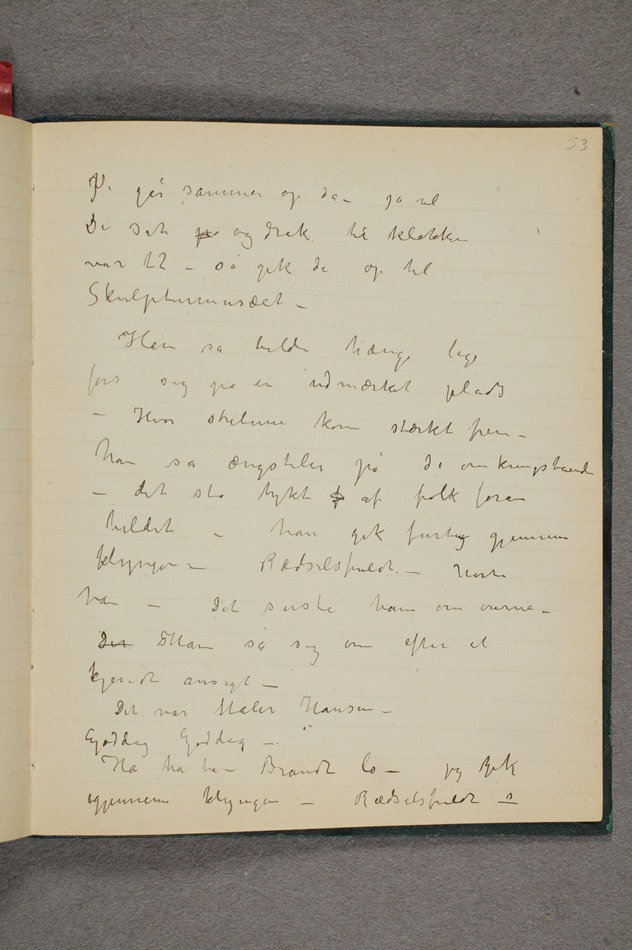 53
Vi går sammen op da – ja vel
De sat på og drak til klokken
var 12 – så gik de op til
Skulpturmusæet –
Han så billedet hænge lige
for sig på en udmærket plads
– Hvor strålerne kom stærkt frem –
han så ængstelig på de omkringstående
– det sto tykt af folk foran
billedet – han gik hurtig gjennem
klyngen – Rædselsfuldt – hørte
han – Det suste ham om ørerne –
Der Han så sig om efter et
kjendt ansigt –
Det var Maler Hansen –
Goddag Goddag –
Ha ha ha – Brandt lo – jeg gik
igjennem klyngen – Rædselsfuldt –